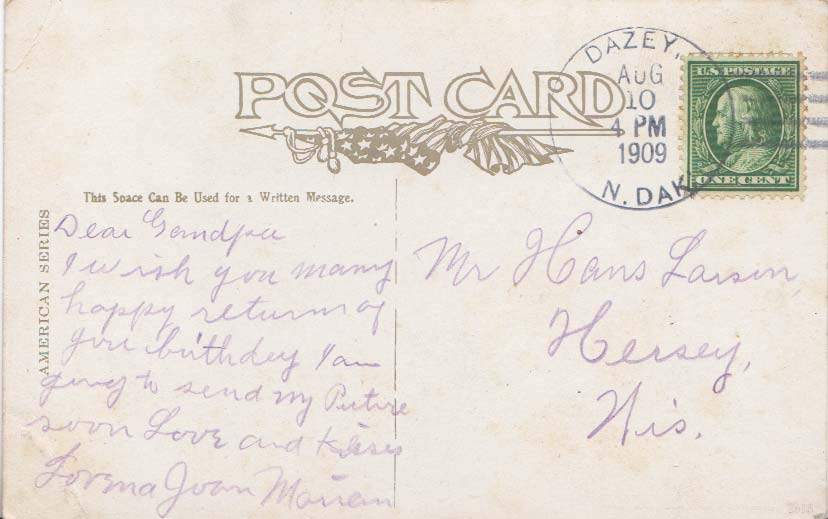 POST CARD
DAZEY,
AUG
10
4 PM
1909
N. DAK
U.S. POSTAGE
ONE CENT
This Space Can Be Used for a Written Message.
AMERICAN SERIES
Dear Grandpa
I wish you many
happy returns of
your birthday I am
going to send my Picture
soon Love and Kisses
Joan
Mr Hans Larson
Hersey,
Wis.